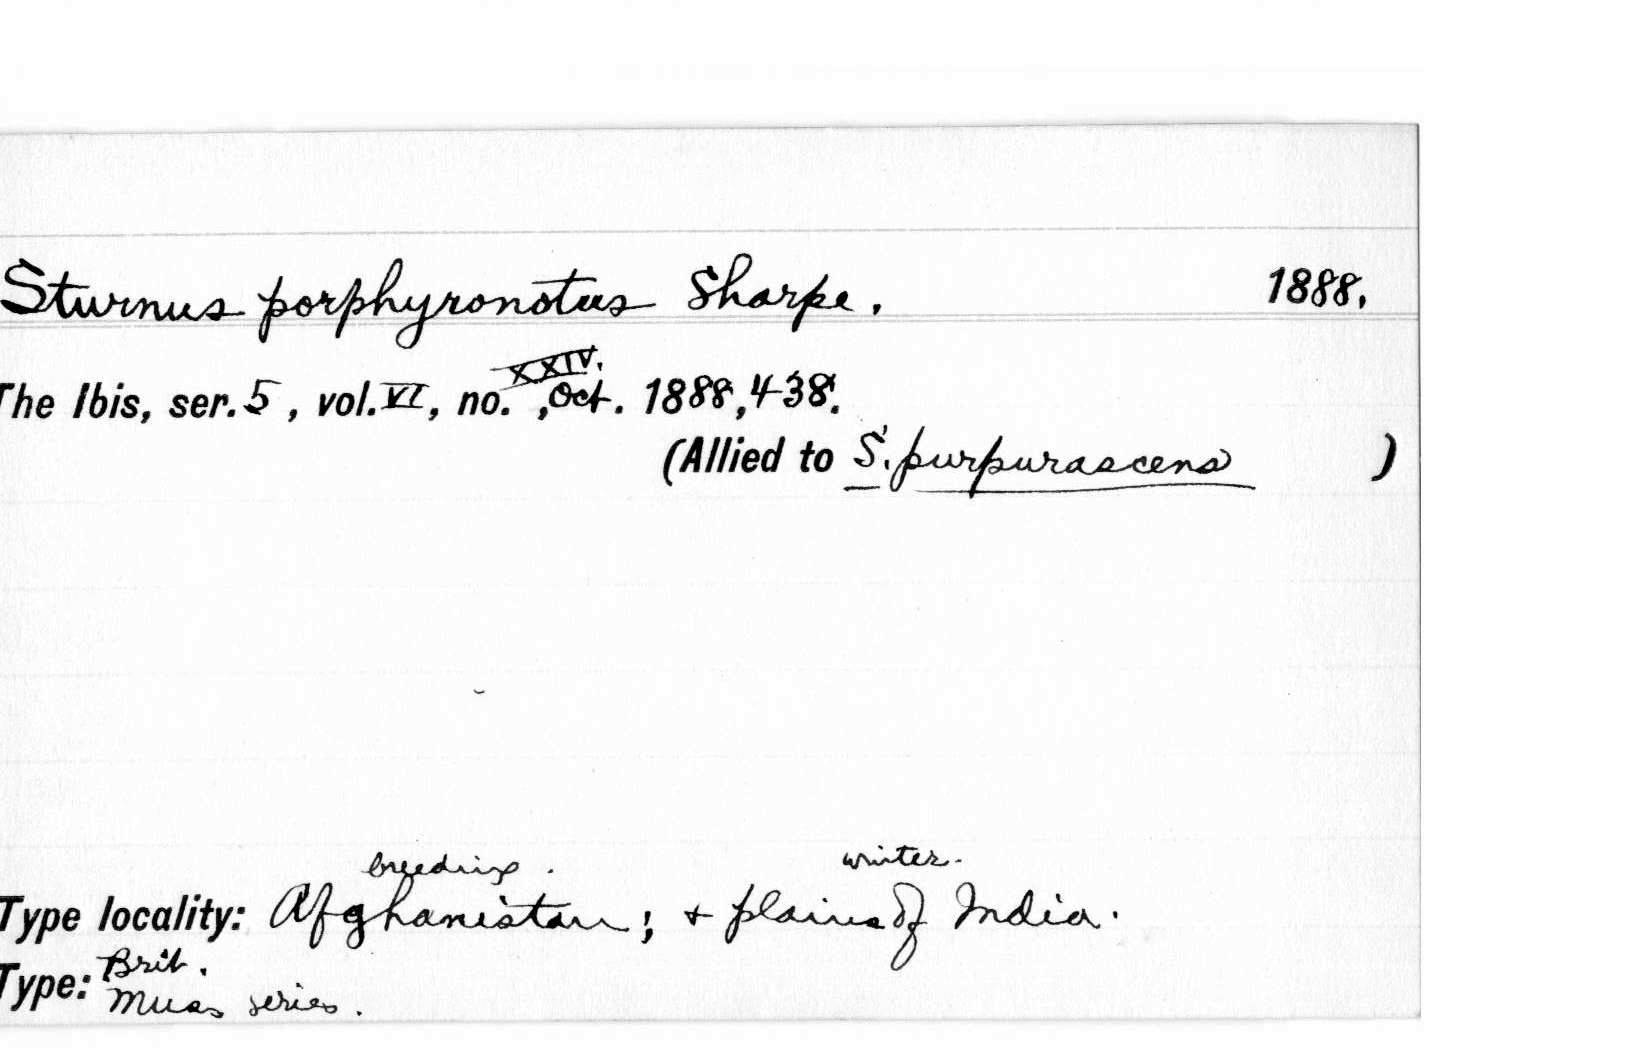 Sturnus porphyronotus Sharpe. 1888.
The Ibis, ser. 5, vol. VI, no. XXIV., Oct. 1888, 438.
(Allied to S. purpurascens )
breeding. winter.
Type locality: Afghanistan; + plains of India.
Type: Brit.
Muss series.